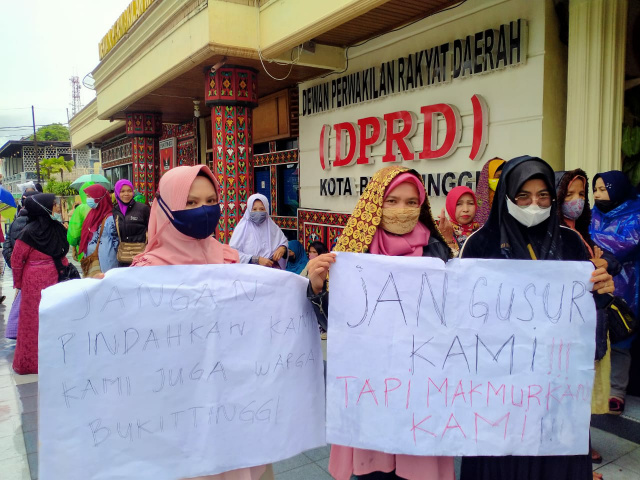 DEWAN PERWAKILAN RAKYAT DAERAH
(DPRD)
KOTA BUKITTINGGI
JANGAN
PINDAHKAN KAMI
KAMI JUGA WARGA
BUKITTINGGI
JANGAN GUSUR
KAMI!!!
TAPI MAKMURKAN
KAMI!!!